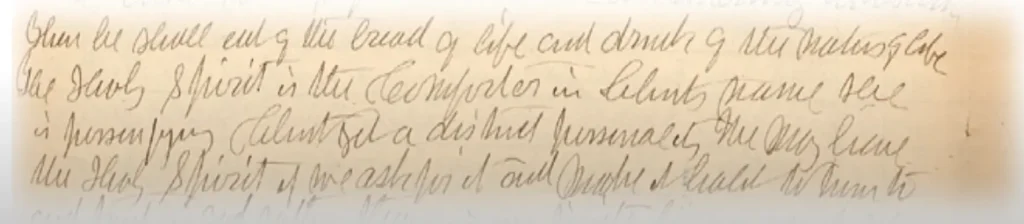 Then he shall eat of the bread of life and drink of the waters of life
The Holy Spirit is the Comforter in Christs name He
is personifying Christ yet a distinct personality We may have
the Holy Spirit if we ask for it and make it habit to turn to